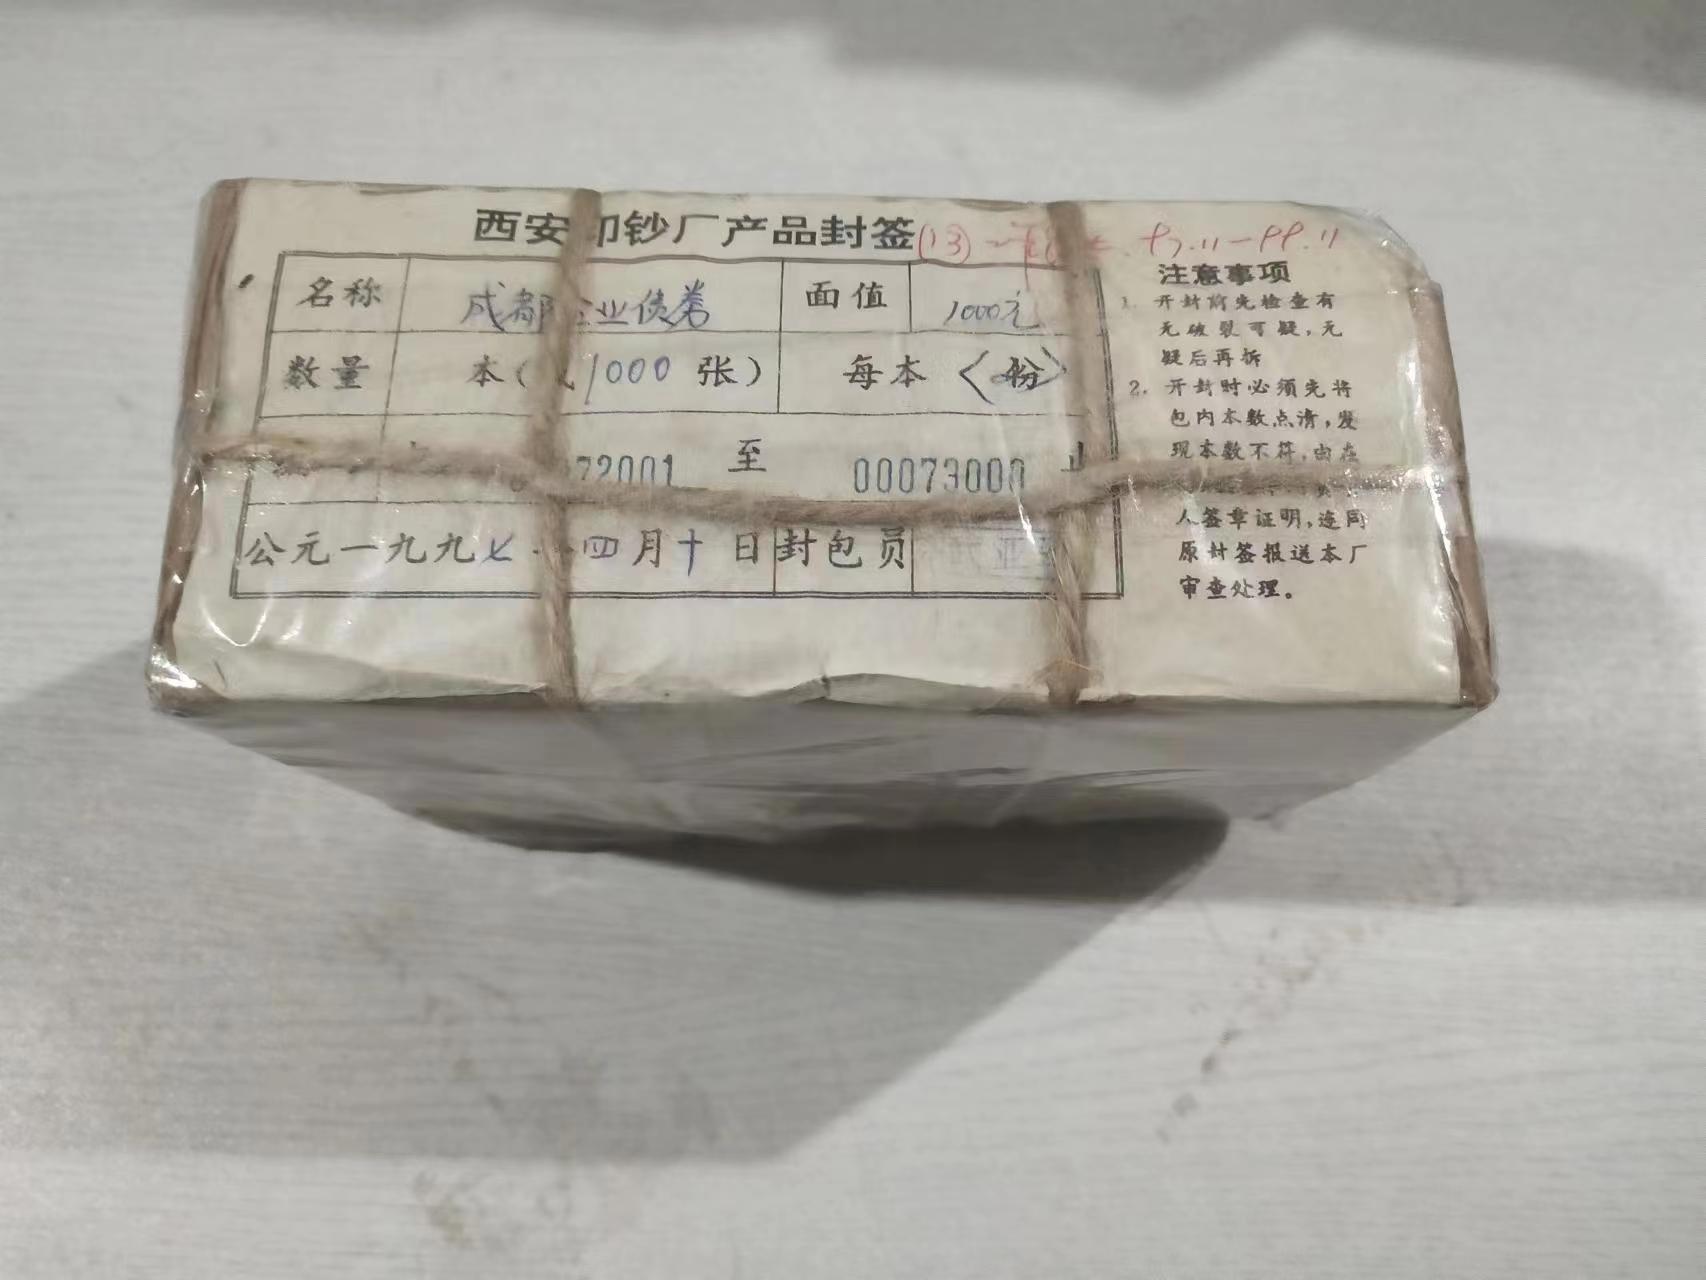 西安印钞厂产品封签 (13)
97.11-99.11
名称 成都企业债券 面值 1000元
数量 本(或1000张) 每本 份
72001 至 00073000 止
公元一九九七 四月十日 封包员
注意事项
1. 开封前先检查有
无破裂可疑，无
疑后再拆
2. 开封时必须先将
包内本数点清，发
现本数不符，由在
人签章证明，连同
原封签报送本厂
审查处理。